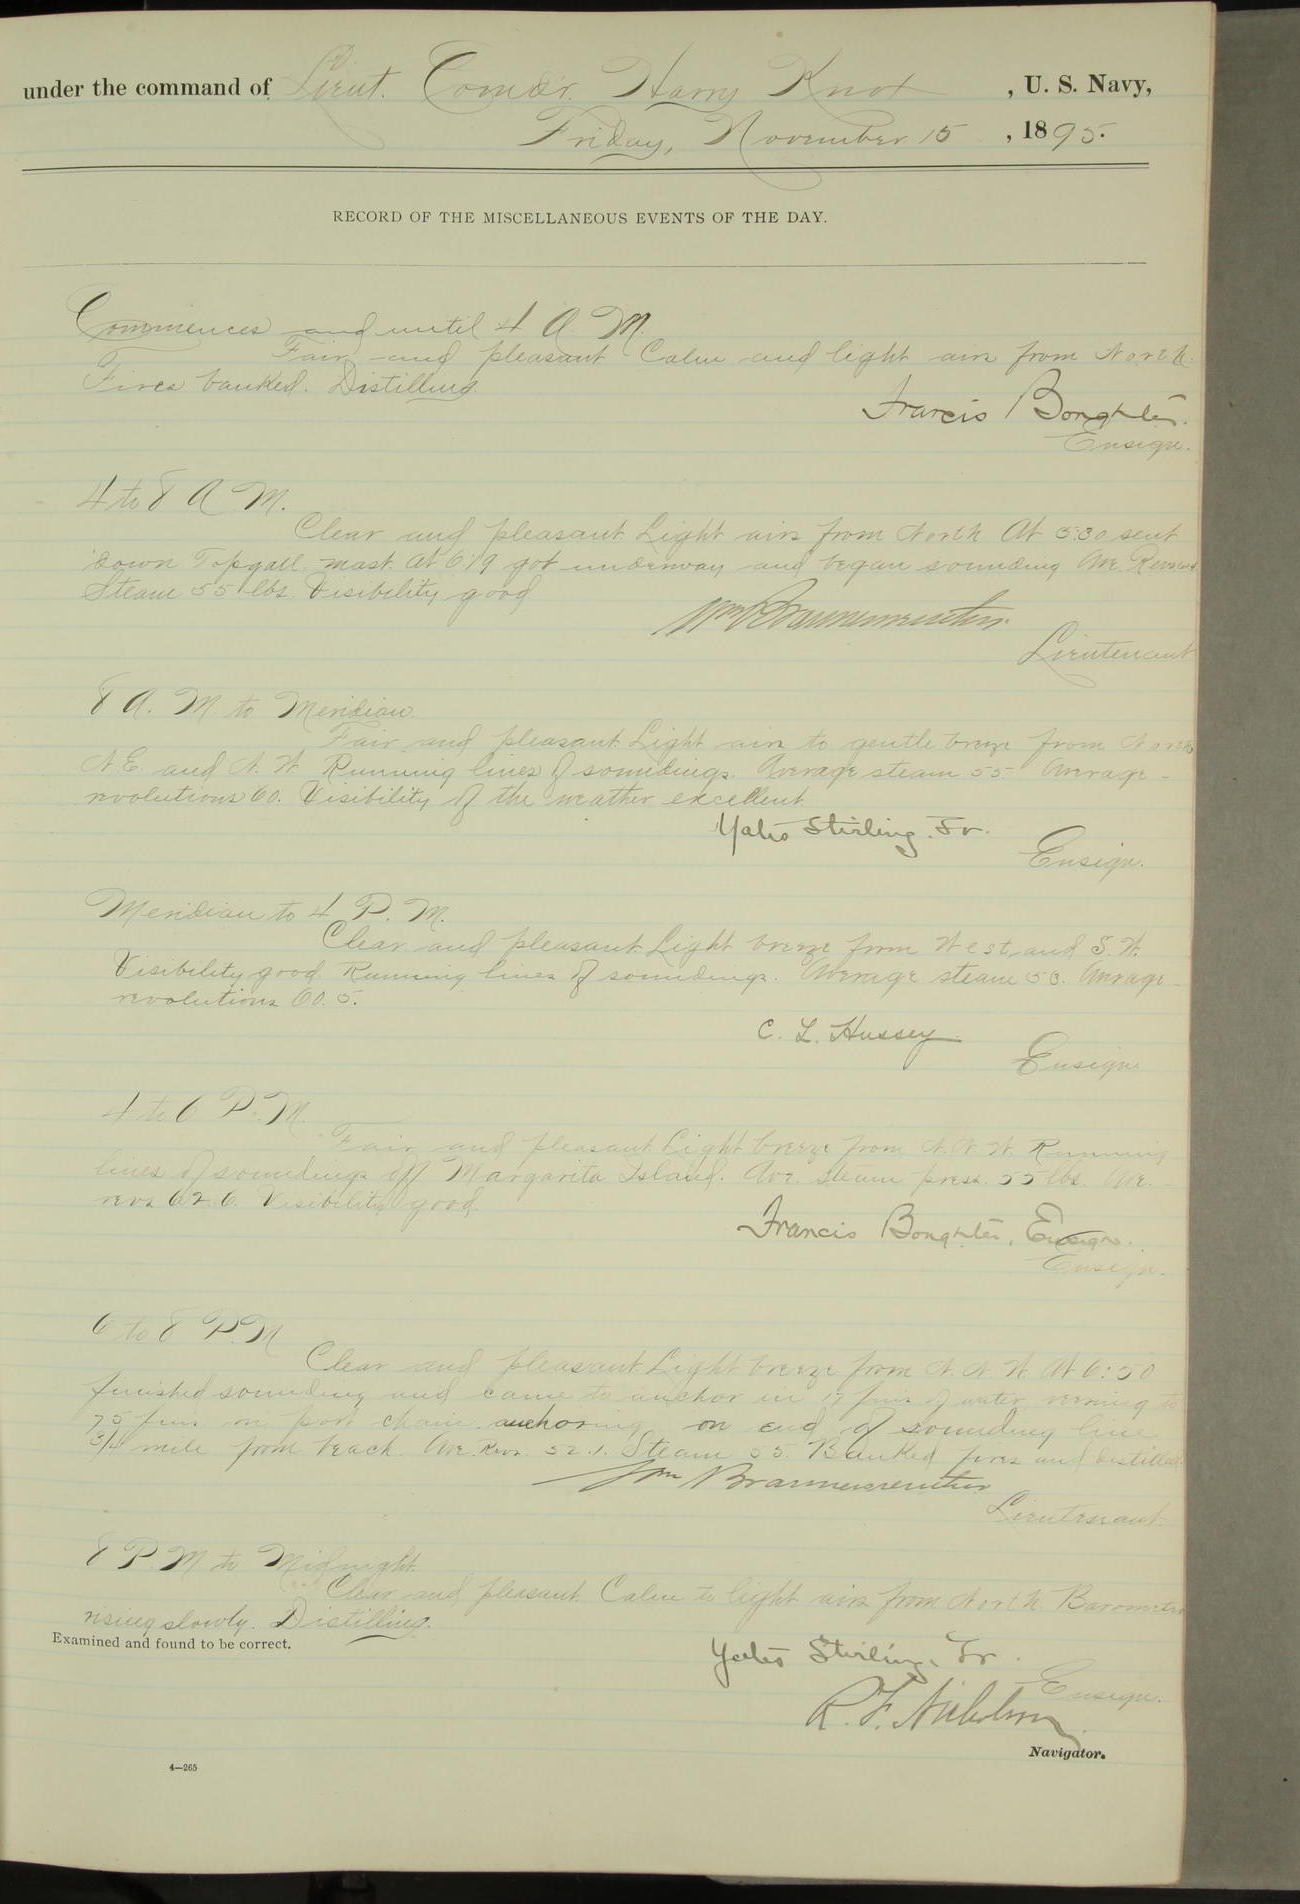 under the command of Lieut. Comdr. Harry Knox, U. S. Navy,
Friday, November 15, 1895.
RECORD OF THE MISCELLANEOUS EVENTS OF THE DAY.
Commences and until 4 A. M.
Fair and pleasant Calm and light airs from North.
Fires banked. Distilling.
Francis Boughter.
Ensign.
4 to 8 A M.
Clear and pleasant Light airs from North At 5:30 sent
down Topgall. mast. At 6:19 got underway and began sounding Ave.
Steam 55 lbs. Visibility good
Lieutenant
8 A. M to Meridian.
Fair and pleasant Light airs to gentle breeze from North
N.E. and N. W. Running lines of soundings. Average steam 55 Average
revolutions 60. Visibility of the weather excellent
Yates Stirling. Jr.
Ensign.
Meridian to 4 P. M.
Clear and pleasant Light breeze from West and S. W.
Visibility good Running lines of soundings. Average steam 53. Average
revolutions 60.5.
C. L. Hussey
Ensign
4 to 6 P. M.
Fair and pleasant Light breeze from N. N. W. Running
lines of soundings off Margarita Island. Ave. steam press. 55 lbs. Ave.
revs 62.6. Visibility good
Francis Boughter, Ensign.
Ensign.
6 to 8 P. M
Clear and pleasant Light breeze from N. N. W. At 6:50
finished sounding and came to anchor in 17 fms of water veering to
75 fms on port chain anchoring on end of sounding line
3/4 mile from beach. Ave. Revs. 52.1. Steam 55. Banked fires and distilled.
Lieutenant.
8 P. M to Midnight.
Clear and pleasant. Calm to light airs from North. Barometer
rising slowly. Distilling.
Examined and found to be correct.
Yates Stirling, Jr.
Ensign.
R. F. Nicholson
Navigator.
4—265